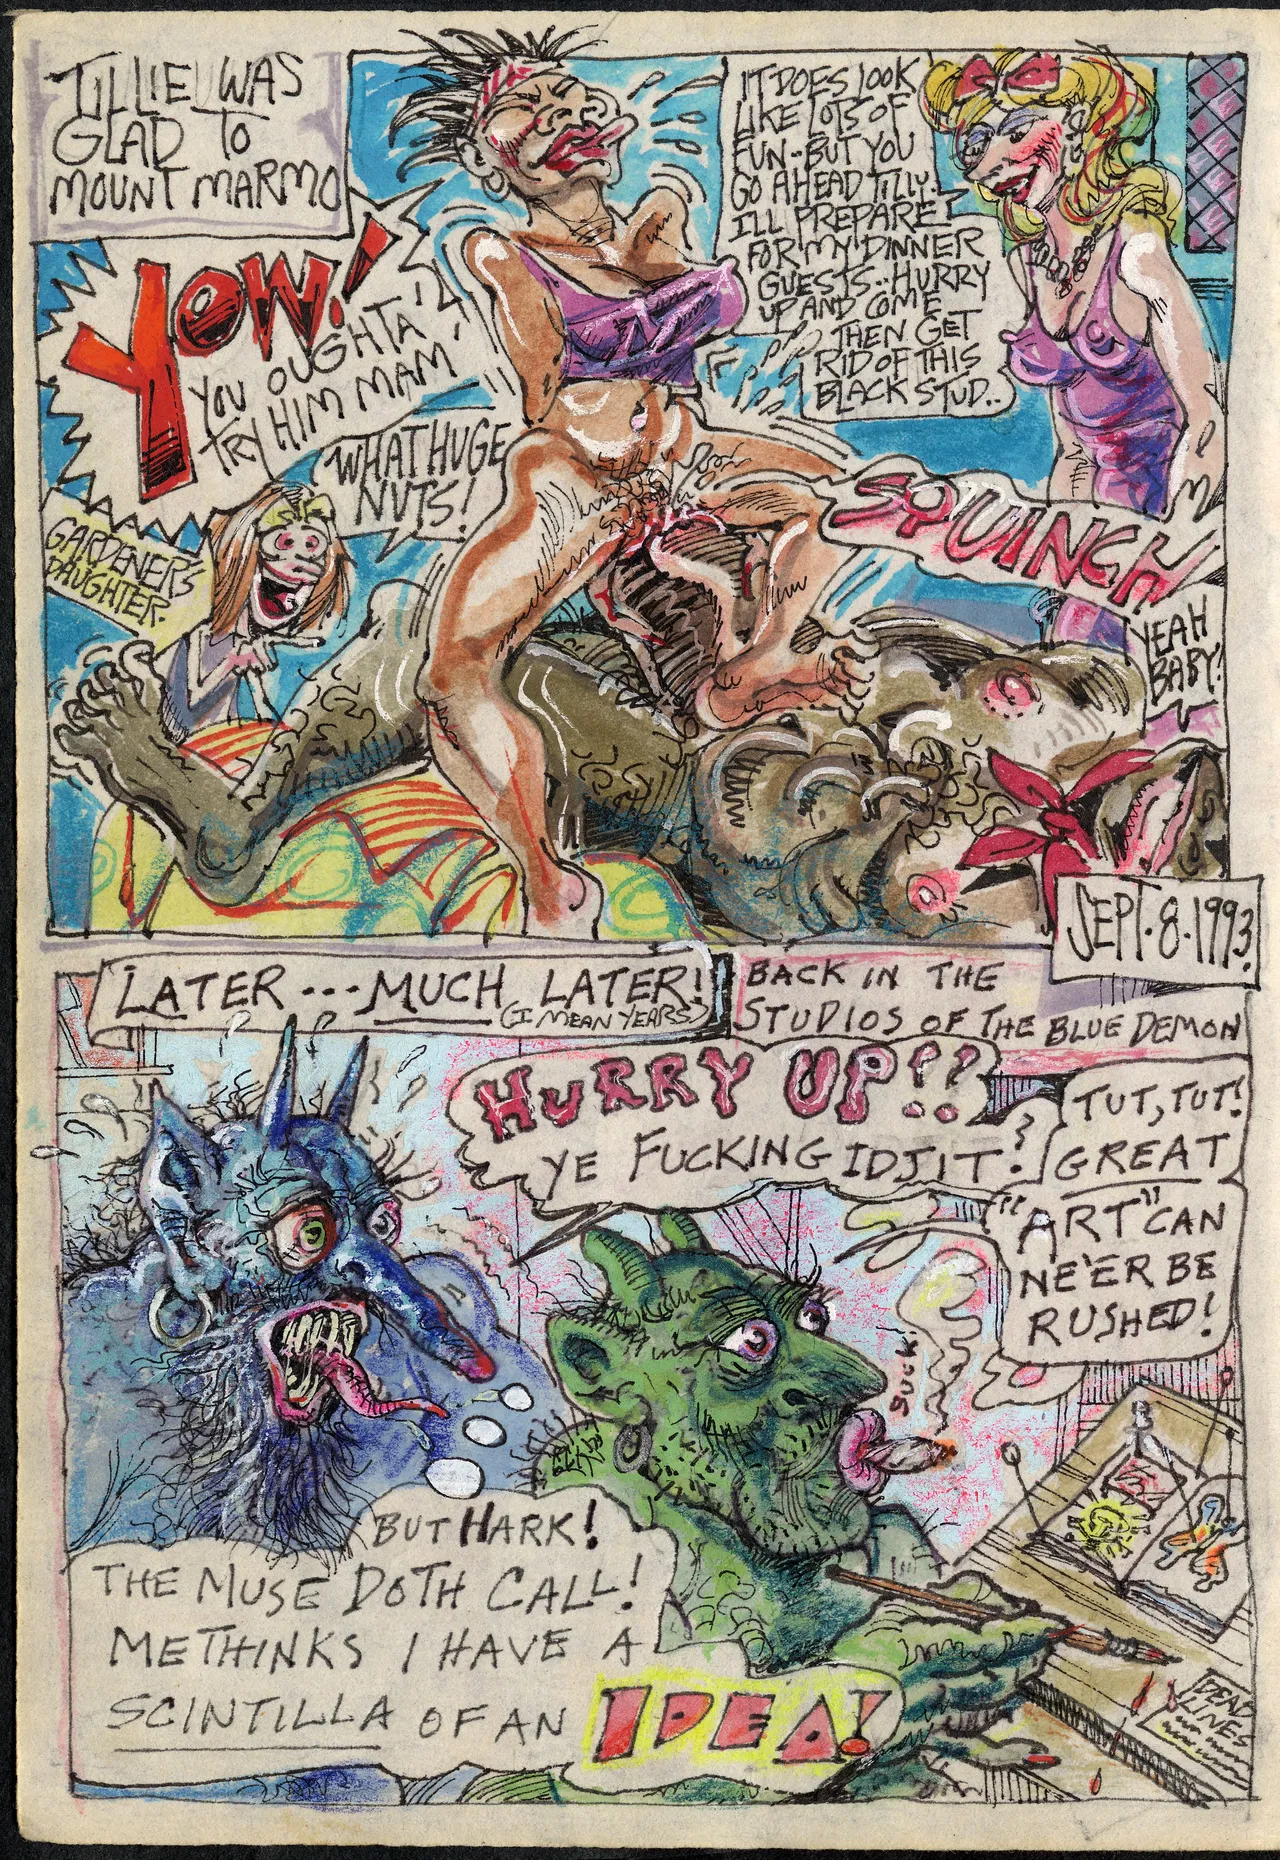 TILLIE WAS
GLAD TO
MOUNT MARMO
YOW!
YOU OUGHTA'
TRY HIM MAM!
WHAT HUGE
NUTS!
GARDENER'S
DAUGHTER.
IT DOES LOOK
LIKE LOTS OF
FUN--BUT YOU
GO AHEAD TILLY.
I'LL PREPARE
FOR MY DINNER
GUESTS.. HURRY
UP AND COME
THEN GET
RID OF THIS
BLACK STUD..
SQUINCH
YEAH
BABY!
SEPT. 8. 1993.
LATER --- MUCH LATER!
(I MEAN YEARS)
BACK IN THE
STUDIOS OF THE BLUE DEMON
HURRY UP!!
YE FUCKING IDJIT!
TUT, TUT!
GREAT
"ART" CAN
NE'ER BE
RUSHED!
SUCK!
BUT HARK!
THE MUSE DOTH CALL!
METHINKS I HAVE A
SCINTILLA OF AN IDEA!
DEAD
LINES